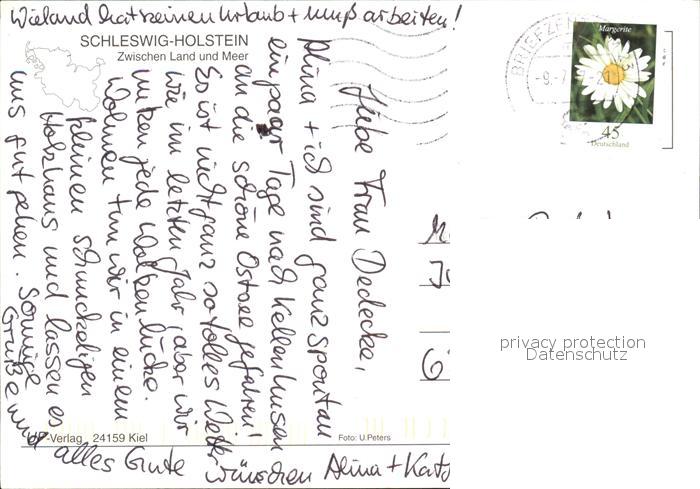 Wieland hat keinen Urlaub + muß arbeiten!
SCHLESWIG-HOLSTEIN
Zwischen Land und Meer
Liebe Frau Dedecke,
Alina + ich sind ganz spontan
ein paar Tage nach Kellenhusen
an die schöne Ostsee gefahren!
Es ist nicht ganz so tolles Wetter
wie im letzten Jahr, aber wir
nutzen jede Wolkenlücke.
Wohnen tun wir in einem
kleinen schnuckeligen
Holzhaus und lassen es
uns gut gehen. Sonnige
Grüße und
alles Gute wünschen Alina + Kat
VP-Verlag 24159 Kiel
Foto: U.Peters
BRIEFZEN
Margerite
45
Deutschland
privacy protection
Datenschutz